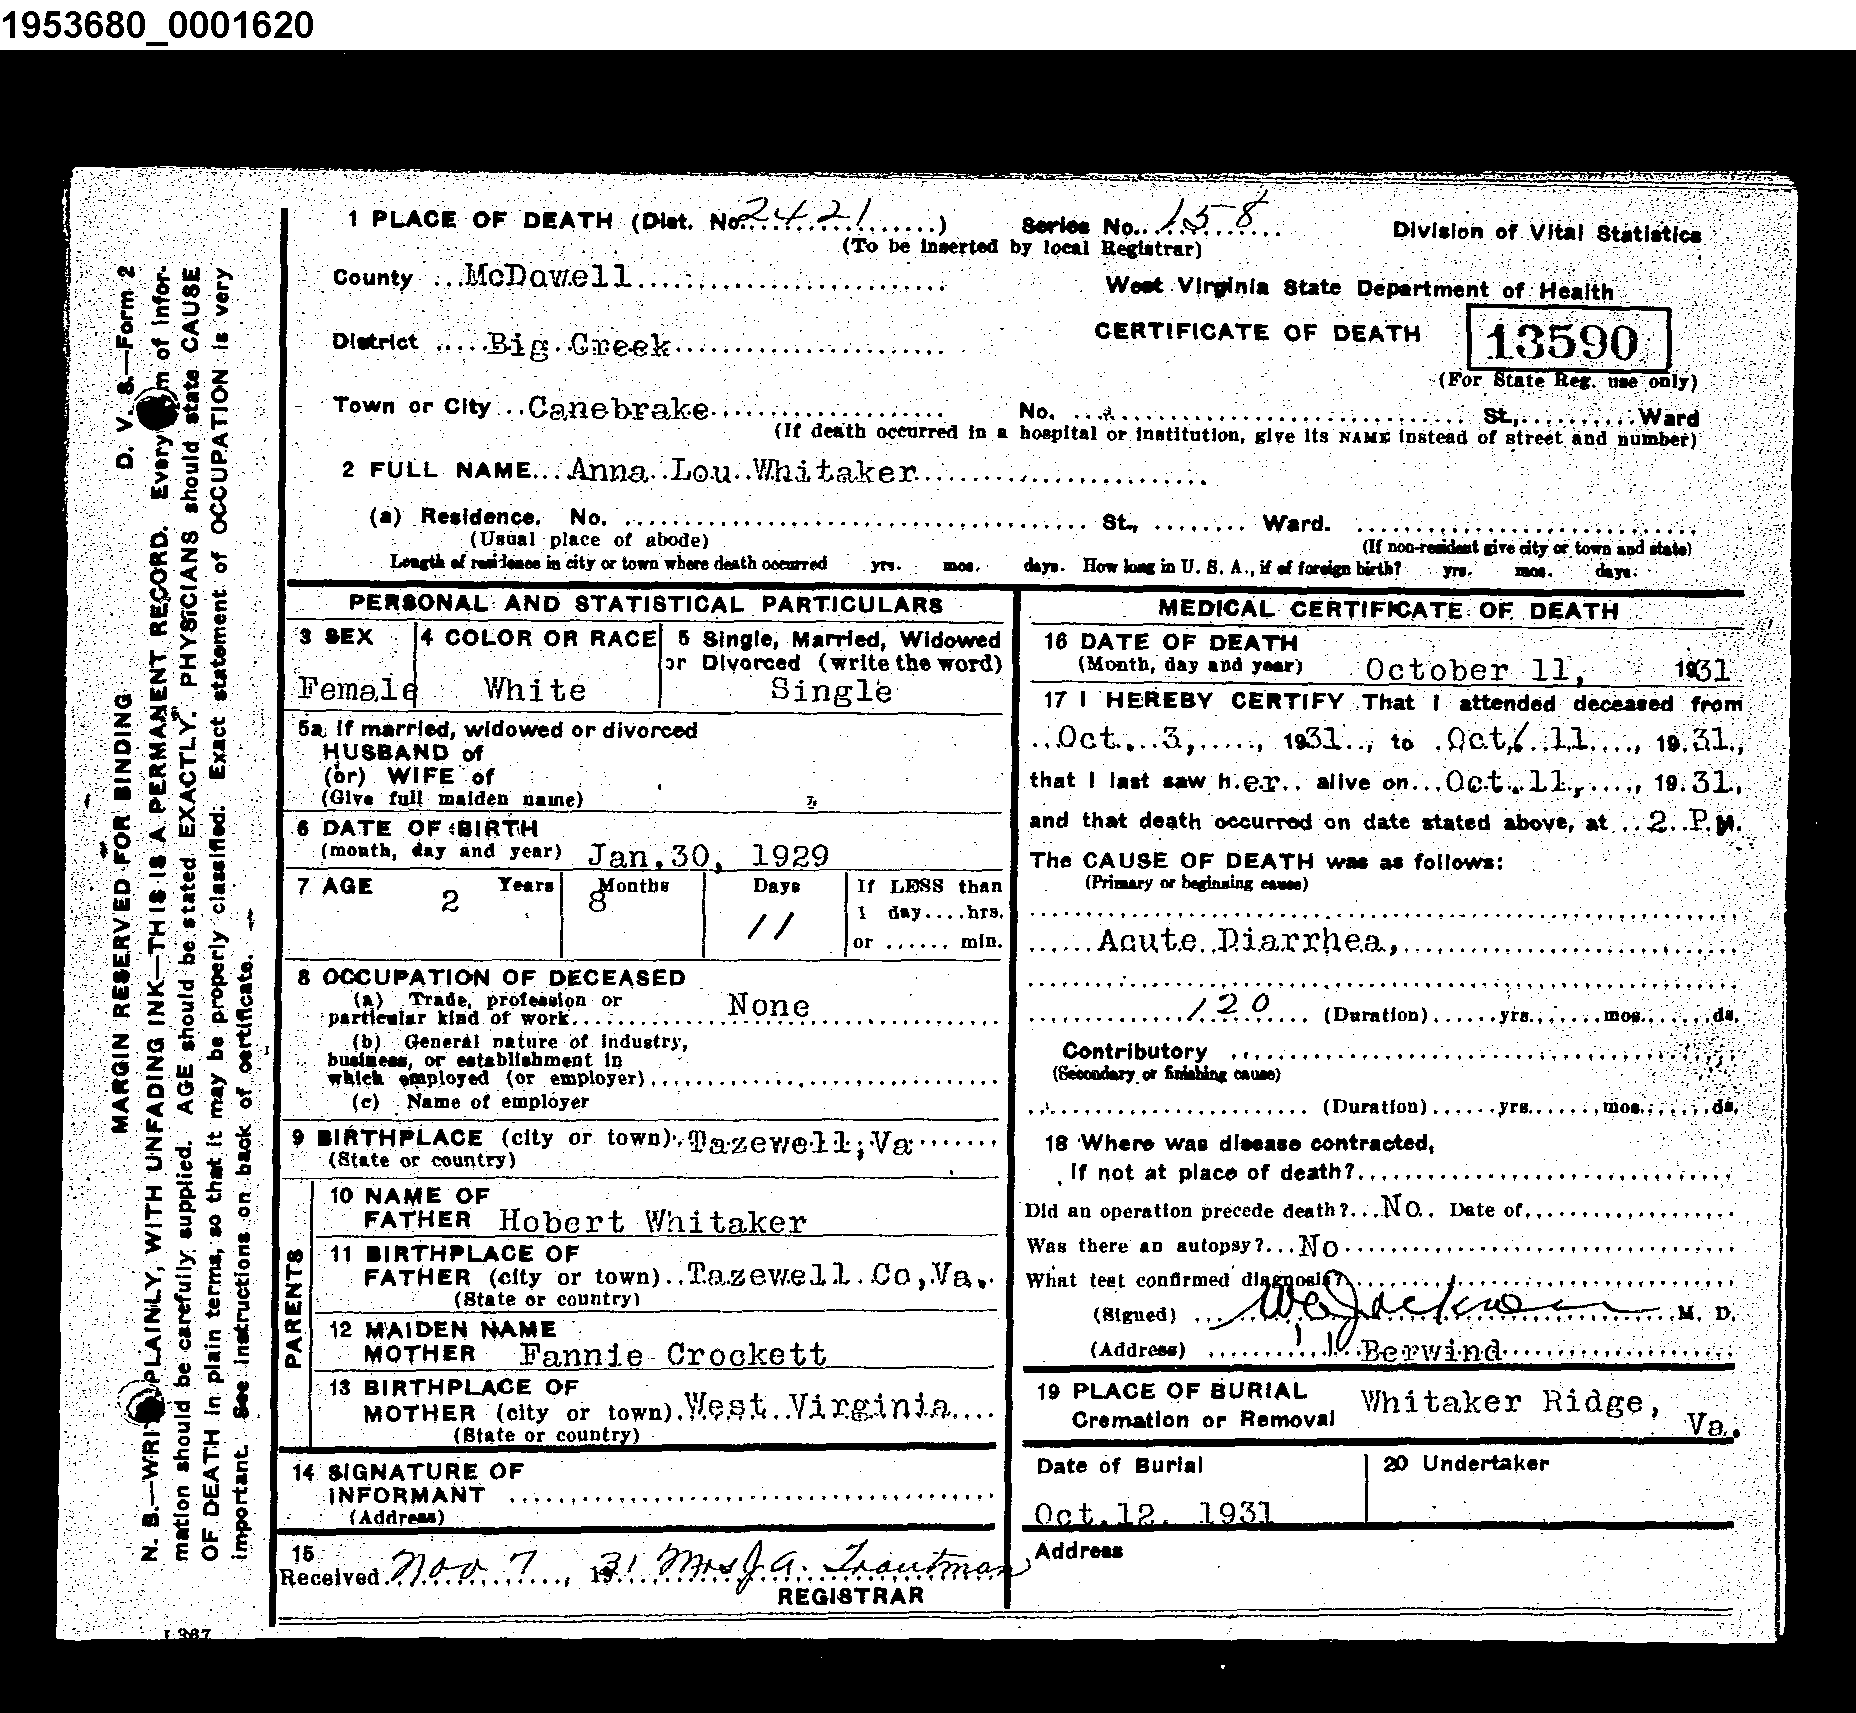 1953680_0001620
1 PLACE OF DEATH (Dist. No. 2421 ) Series No. 158 Division of Vital Statistics
(To be inserted by local Registrar)
County McDowell West Virginia State Department of Health
District Big Creek CERTIFICATE OF DEATH 13590
(For State Reg. use only)
Town or City Canebrake No. St., Ward
(If death occurred in a hospital or institution, give its NAME instead of street and number)
2 FULL NAME Anna Lou Whitaker
(a) Residence. No. St., Ward.
(Usual place of abode) (If non-resident give city or town and state)
Length of residence in city or town where death occurred yrs. mos. days. How long in U. S. A., if of foreign birth? yrs. mos. days.
PERSONAL AND STATISTICAL PARTICULARS
3 SEX 4 COLOR OR RACE 5 Single, Married, Widowed
or Divorced (write the word)
Female White Single
5a If married, widowed or divorced
HUSBAND of
(or) WIFE of
(Give full maiden name)
6 DATE OF BIRTH
(month, day and year) Jan. 30, 1929
7 AGE Years Months Days If LESS than
2 8 11 1 day....hrs.
or ...... min.
8 OCCUPATION OF DECEASED
(a) Trade, profession or
particular kind of work None
(b) General nature of industry,
business, or establishment in
which employed (or employer)
(c) Name of employer
9 BIRTHPLACE (city or town) Tazewell, Va
(State or country)
PARENTS
10 NAME OF
FATHER Hobert Whitaker
11 BIRTHPLACE OF
FATHER (city or town) Tazewell Co, Va.
(State or country)
12 MAIDEN NAME
MOTHER Fannie Crockett
13 BIRTHPLACE OF
MOTHER (city or town) West Virginia
(State or country)
14 SIGNATURE OF
INFORMANT
(Address)
15
Received Nov 7, 1931 Mrs J. A. Troutman
REGISTRAR
MEDICAL CERTIFICATE OF DEATH
16 DATE OF DEATH
(Month, day and year) October 11, 1931
17 I HEREBY CERTIFY That I attended deceased from
Oct. 3, 1931, to Oct. 11, 1931,
that I last saw her alive on Oct. 11, 1931,
and that death occurred on date stated above, at 2 P.M.
The CAUSE OF DEATH was as follows:
(Primary or beginning cause)
Acute Diarrhea,
120 (Duration) yrs. mos. ds.
Contributory
(Secondary or finishing cause)
(Duration) yrs. mos. ds.
18 Where was disease contracted,
If not at place of death?
Did an operation precede death? No. Date of
Was there an autopsy? No
What test confirmed diagnosis?
(Signed) Jackson M. D.
(Address) Berwind
19 PLACE OF BURIAL Whitaker Ridge,
Cremation or Removal Va.
Date of Burial 20 Undertaker
Oct. 12. 1931
Address
D. V. S.—Form 2
MARGIN RESERVED FOR BINDING
N. B.—WRITE PLAINLY, WITH UNFADING INK—THIS IS A PERMANENT RECORD. Every item of infor-
mation should be carefully supplied. AGE should be stated EXACTLY. PHYSICIANS should state CAUSE
OF DEATH in plain terms, so that it may be properly classified. Exact statement of OCCUPATION is very
important. See instructions on back of certificate.